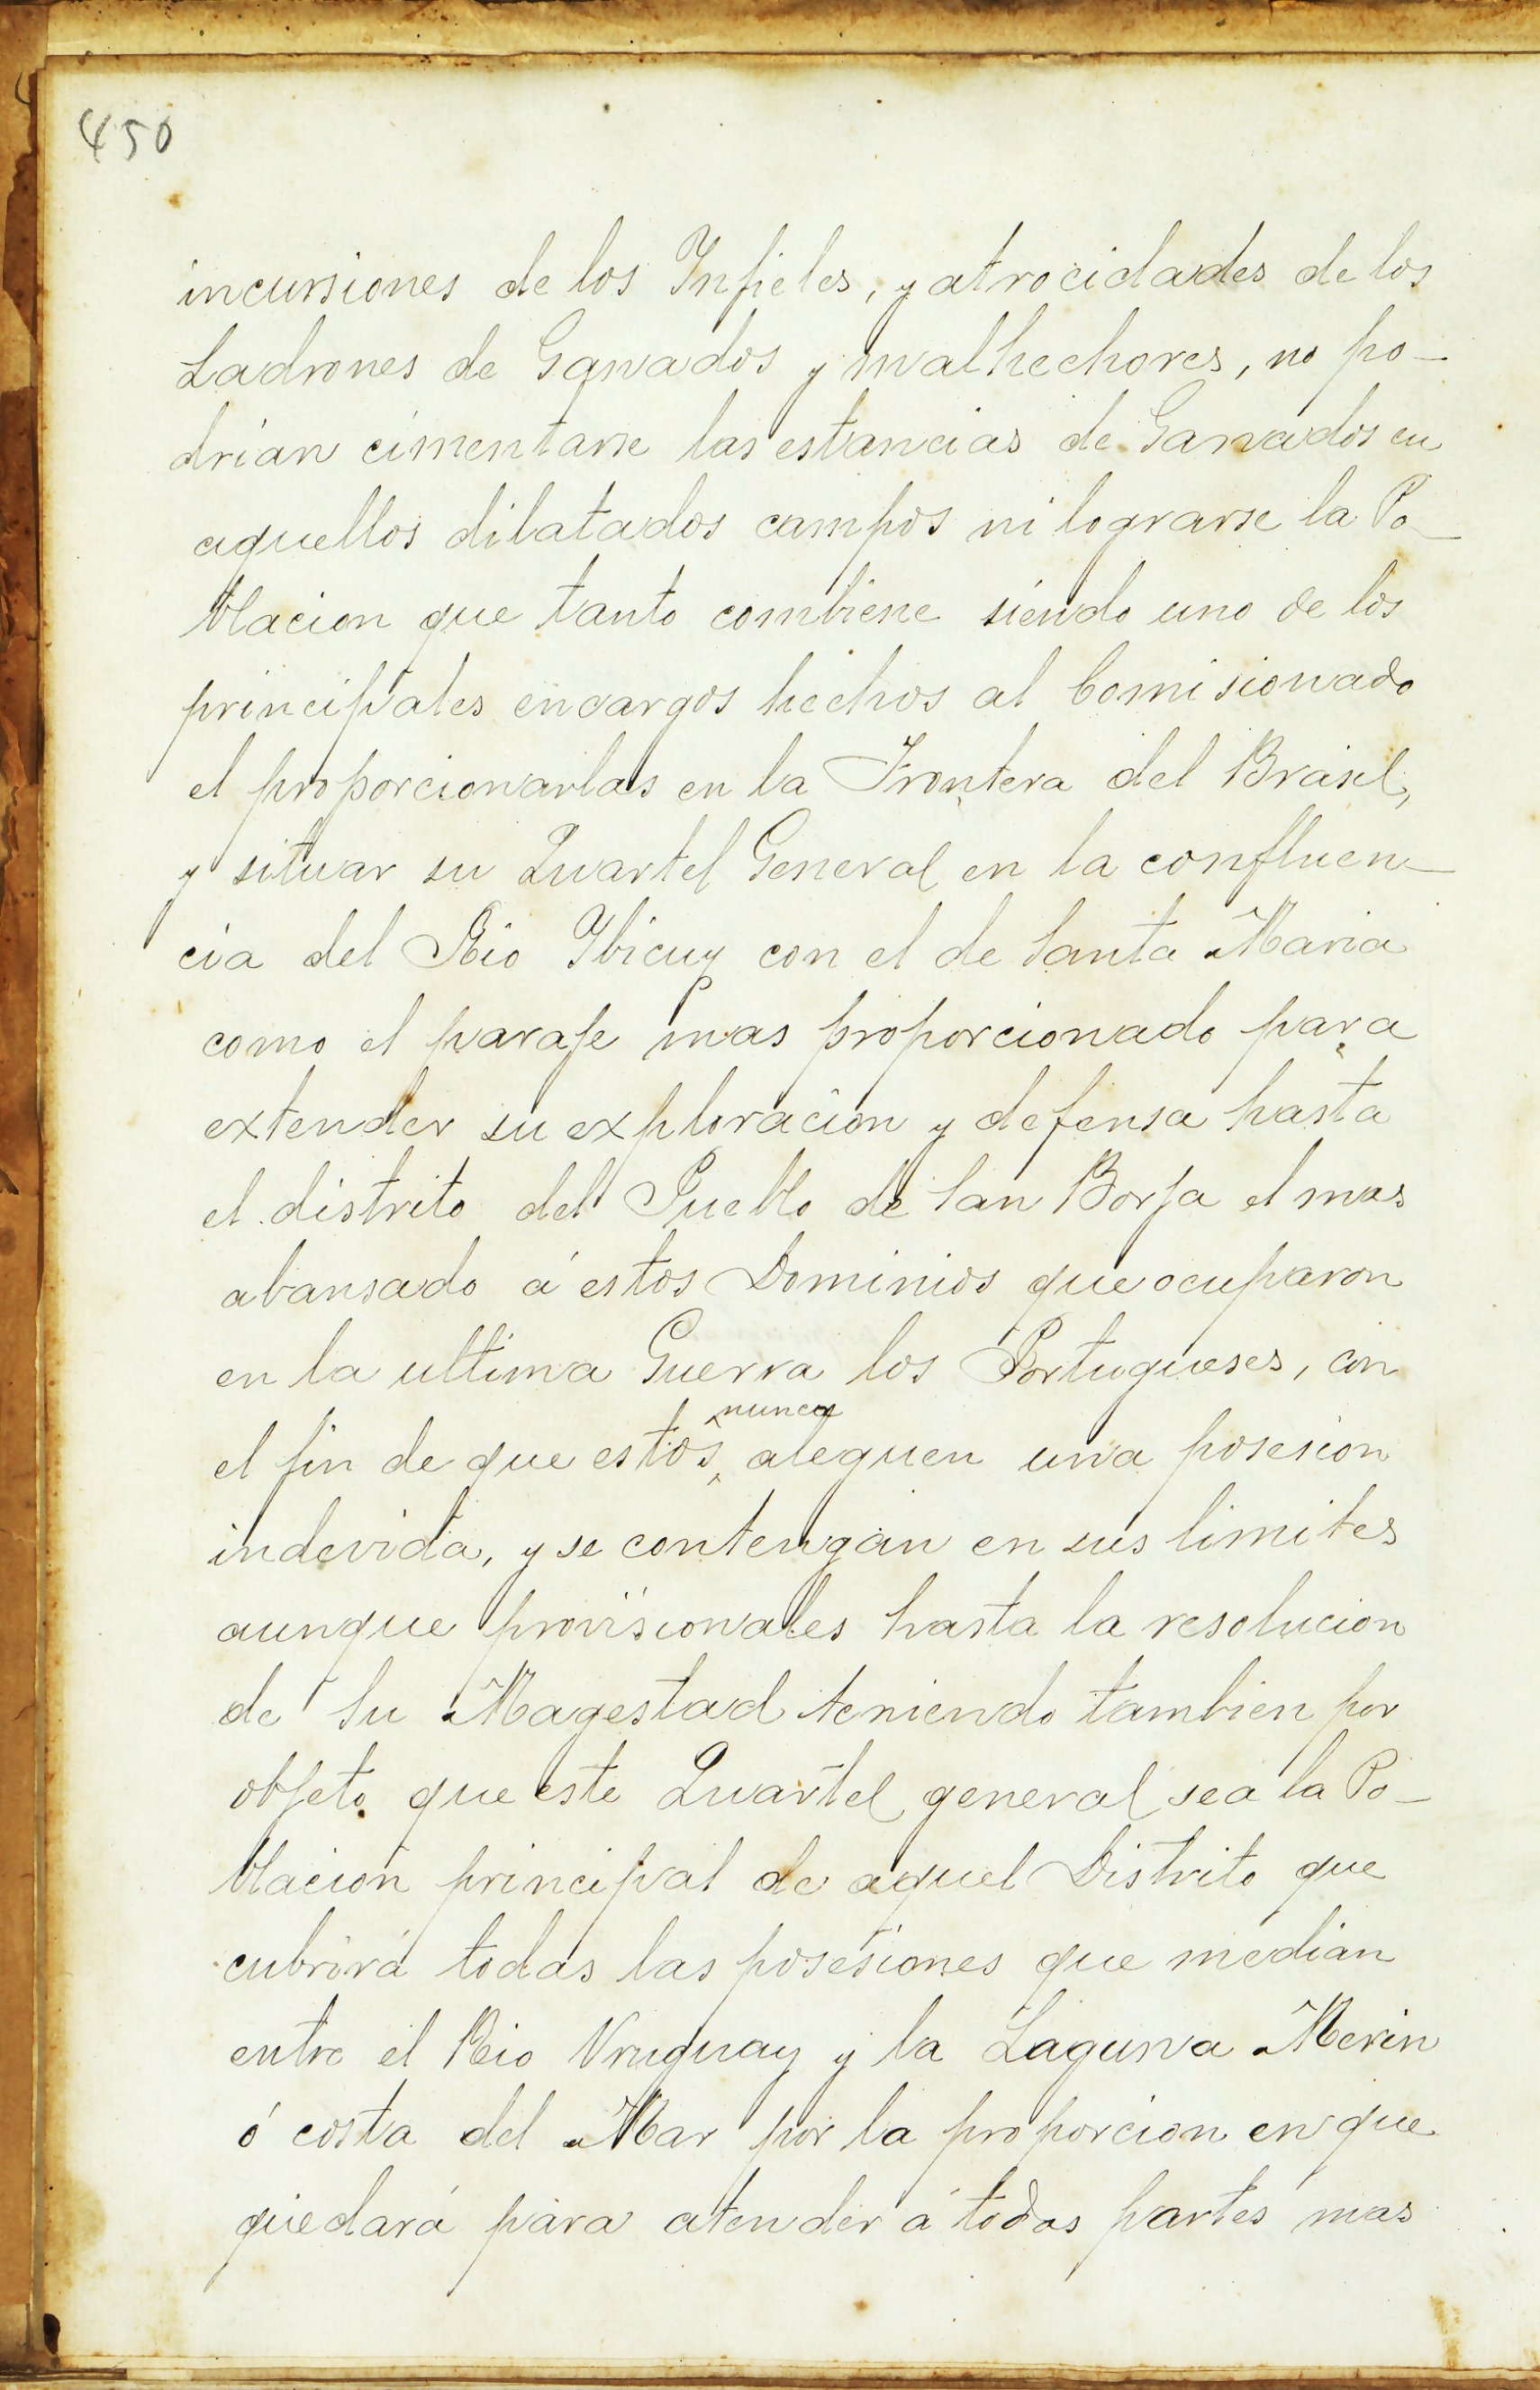 450
incursiones de los Infieles, y atrocidades de los
Ladrones de Ganados y malhechores, no po-
drian cimentarse las estancias de Ganados en
aquellos dilatados campos ni lograrse la Po-
blacion que tanto combiene siendo uno de los
principales encargos hechos al Comisionado
el proporcionarlas en la Frontera del Brasil,
y situar su Quartel General en la confluen-
cia del Rio Ybicuy con el de Santa Maria
como el paraje mas proporcionado para
extender su exploracion y defensa hasta
el distrito del Pueblo de San Borja el mas
abansado á estos Dominios que ocuparon
en la ultima Guerra los Portugueses, con
nunca
el fin de que estos aleguen una posesion
indevida, y se contengan en sus limites
aunque provisionales hasta la resolucion
de Su Magestad teniendo tambien por
objeto que este Quartel general sea la Po-
blacion principal de aquel Distrito que
cubrirá todas las posesiones que median
entre el Rio Uruguay y la Laguna Merin
ó costa del Mar por la proporcion en que
quedará para atender á todas partes mas